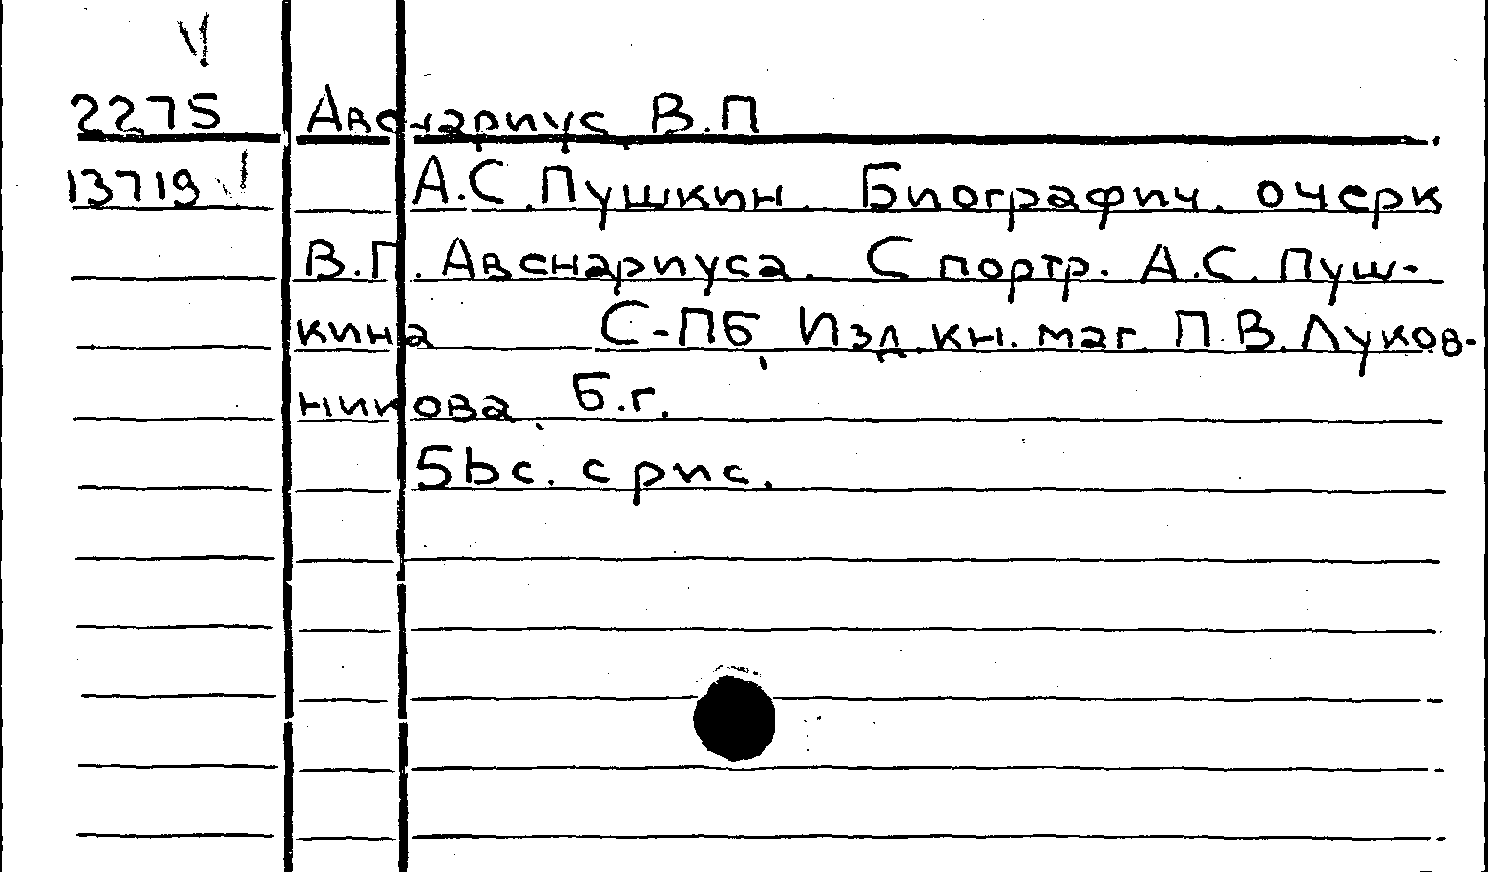 2275 Авенариус, В.П
13719 А.С. Пушкин. Биографич. очерк
В.П. Авенариуса. С портр. А.С. Пуш-
кина С-ПБ, Изд. кн. маг. П.В. Луков-
никова, Б.г.
56с. с рис.